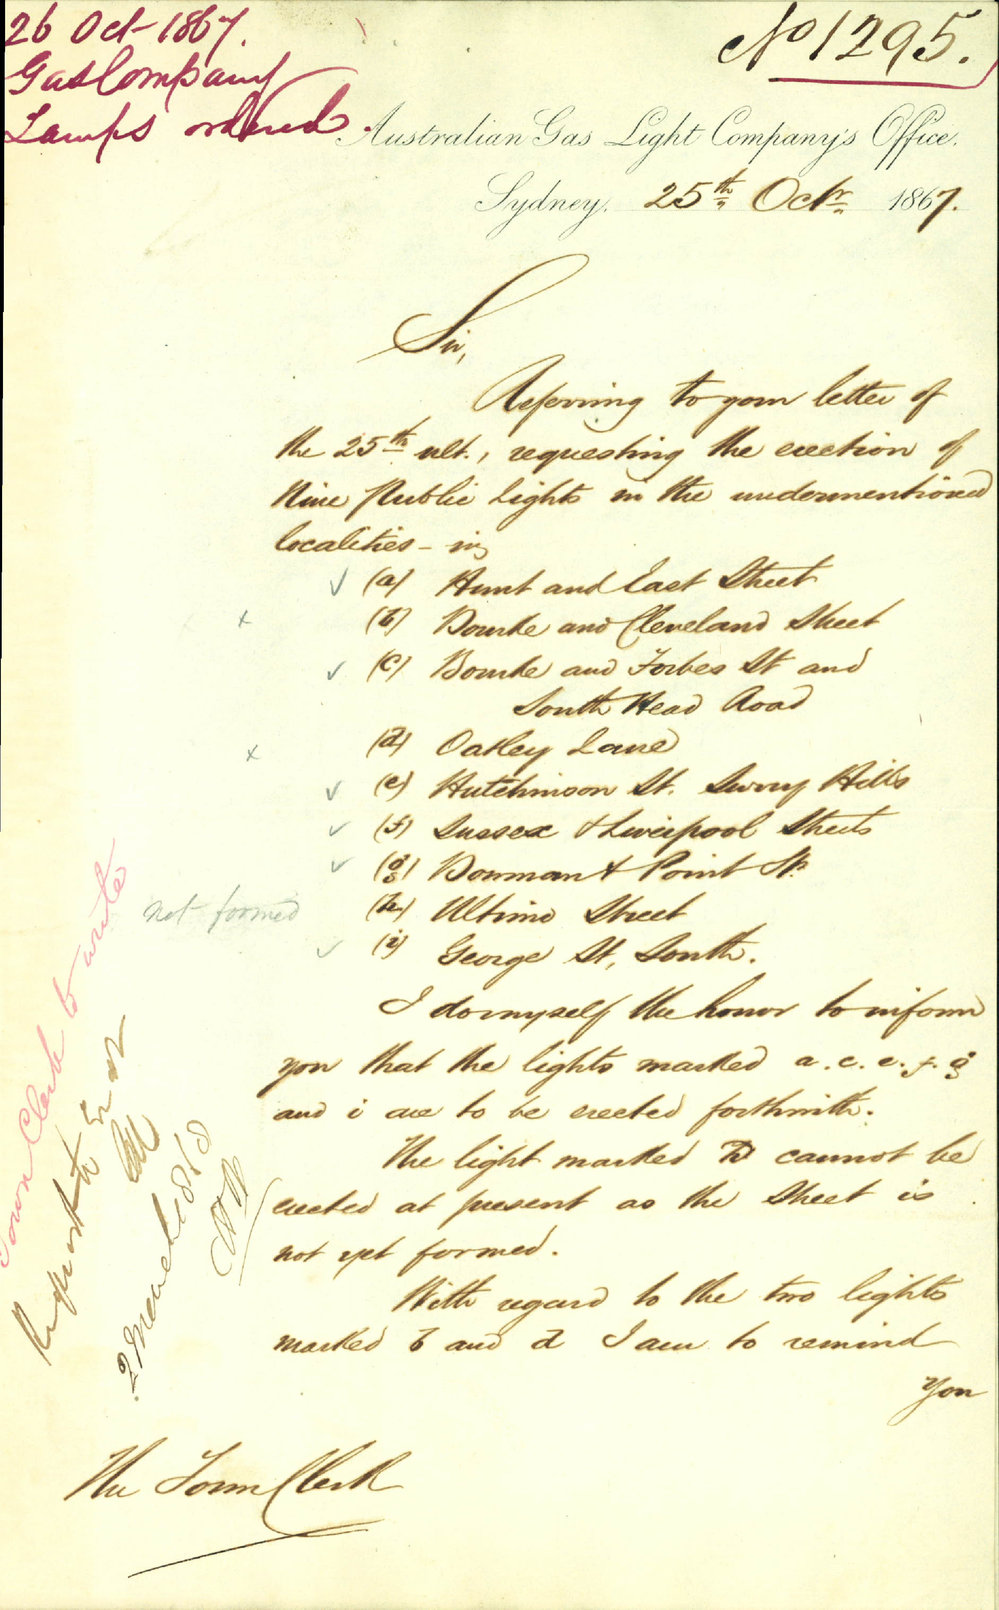 26 Oct 1867.
Gas Company
Lamps ordered.
No 1295.
Australian Gas Light Company's Office.
Sydney, 25th Octr. 1867.
Sir,
Referring to your letter of
the 25th ult., requesting the erection of
Nine Public Lights in the undermentioned
localities - viz
(a) Hunt and East Street
(b) Bourke and Cleveland Street
(c) Bourke and Forbes St and
South Head Road
(d) Oatley Lane
(e) Hutchinson St. Surry Hills
(f) Sussex & Liverpool Streets
(g) Bowman & Point St.
not formed (h) Ultimo Street
(i) George St, South.
I do myself the honor to inform
you that the lights marked a. c. e. f. g
and i are to be erected forthwith.
The light marked h cannot be
erected at present as the Street is
not yet formed.
With regard to the two lights
marked b and d I am to remind
you
The Town Clerk
Town Clerk to write
2 March 1868